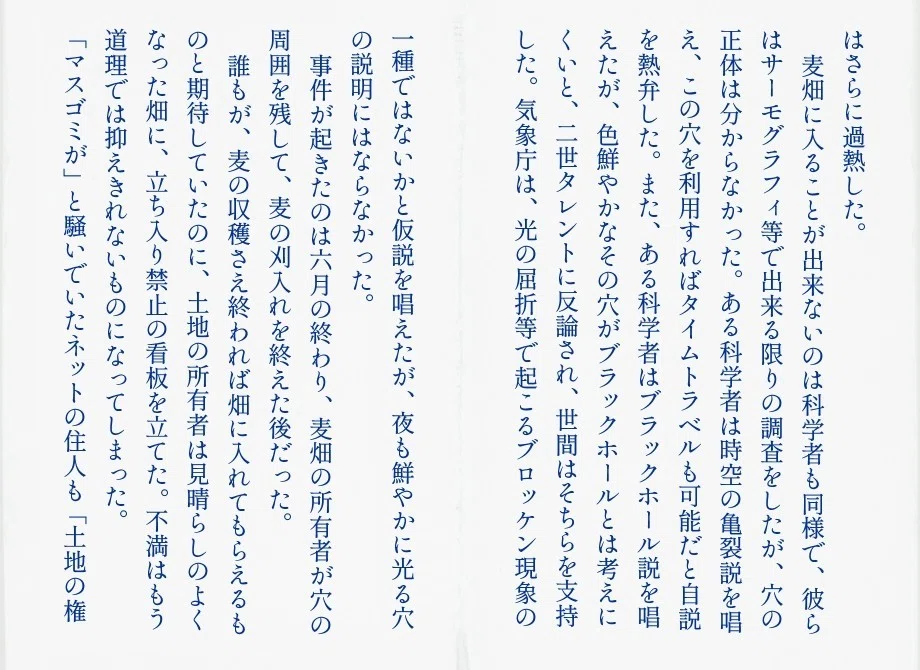 はさらに過熱した。
　麦畑に入ることが出来ないのは科学者も同様で、彼ら
はサーモグラフィ等で出来る限りの調査をしたが、穴の
正体は分からなかった。ある科学者は時空の亀裂説を唱
え、この穴を利用すればタイムトラベルも可能だと自説
を熱弁した。また、ある科学者はブラックホール説を唱
えたが、色鮮やかなその穴がブラックホールとは考えに
くいと、二世タレントに反論され、世間はそちらを支持
した。気象庁は、光の屈折等で起こるブロッケン現象の
一種ではないかと仮説を唱えたが、夜も鮮やかに光る穴
の説明にはならなかった。
　事件が起きたのは六月の終わり、麦畑の所有者が穴の
周囲を残して、麦の刈入れを終えた後だった。
　誰もが、麦の収穫さえ終われば畑に入れてもらえるも
のと期待していたのに、土地の所有者は見晴らしのよく
なった畑に、立ち入り禁止の看板を立てた。不満はもう
道理では抑えきれないものになってしまった。
「マスゴミが」と騒いでいたネットの住人も「土地の権